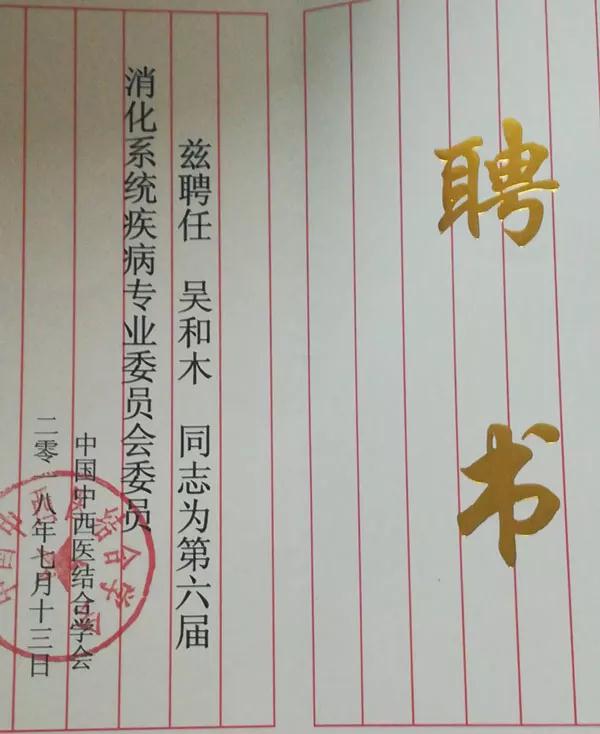 聘书
兹聘任 吴和木 同志为第六届
消化系统疾病专业委员会委员
中国中西医结合学会
二零一八年七月十三日